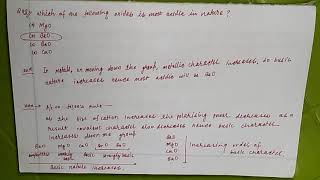 which of the following oxides is most acidic in nature?
(i) MgO
(ii) BeO
(iii) BaO
(iv) CaO
In metals, on moving down the group, metallic character increases, so basic
nature increases hence most acidic will be BeO
As the size of cation increases its polarising power decreases as a
result covalent character also decreases hence basic character
increases down the group
BeO MgO CaO SrO BaO
amphoteric weakly basic strongly basic
Basic nature increases
BeO
MgO
CaO
BaO
Increasing order of
basic character